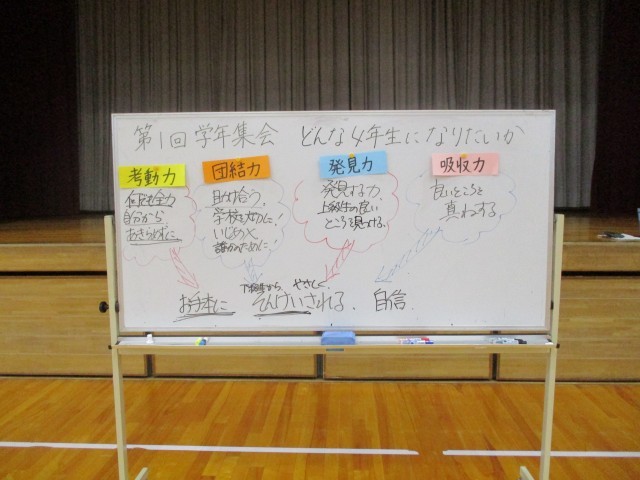 第1回学年集会 どんな4年生になりたいか
考動力
団結力
発見力
吸収力
何でも全力
自分から
あきらめずに
助け合う
学校を大切に!
誰かのために!
発見する力
上級生の良い
ところを見つける
良いところを
真ねする
下級生から やさしく
お手本に そんけいされる 自信